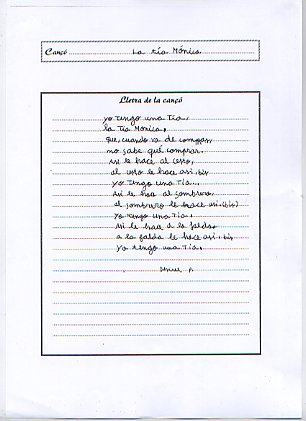 Cançó La tía Mónica
Lletra de la cançó
yo tengo una tía,
la tía Mónica,
que, cuando va de compras,
no sabe qué comprar.
Así le hace al cesto,
al cesto le hace así. bis
yo tengo una tía...
Así le hace al sombrero
al sombrero le hace así. (bis)
yo tengo una tía,
Así le hace a la falda,
a la falda le hace así. bis
yo tengo una tía.